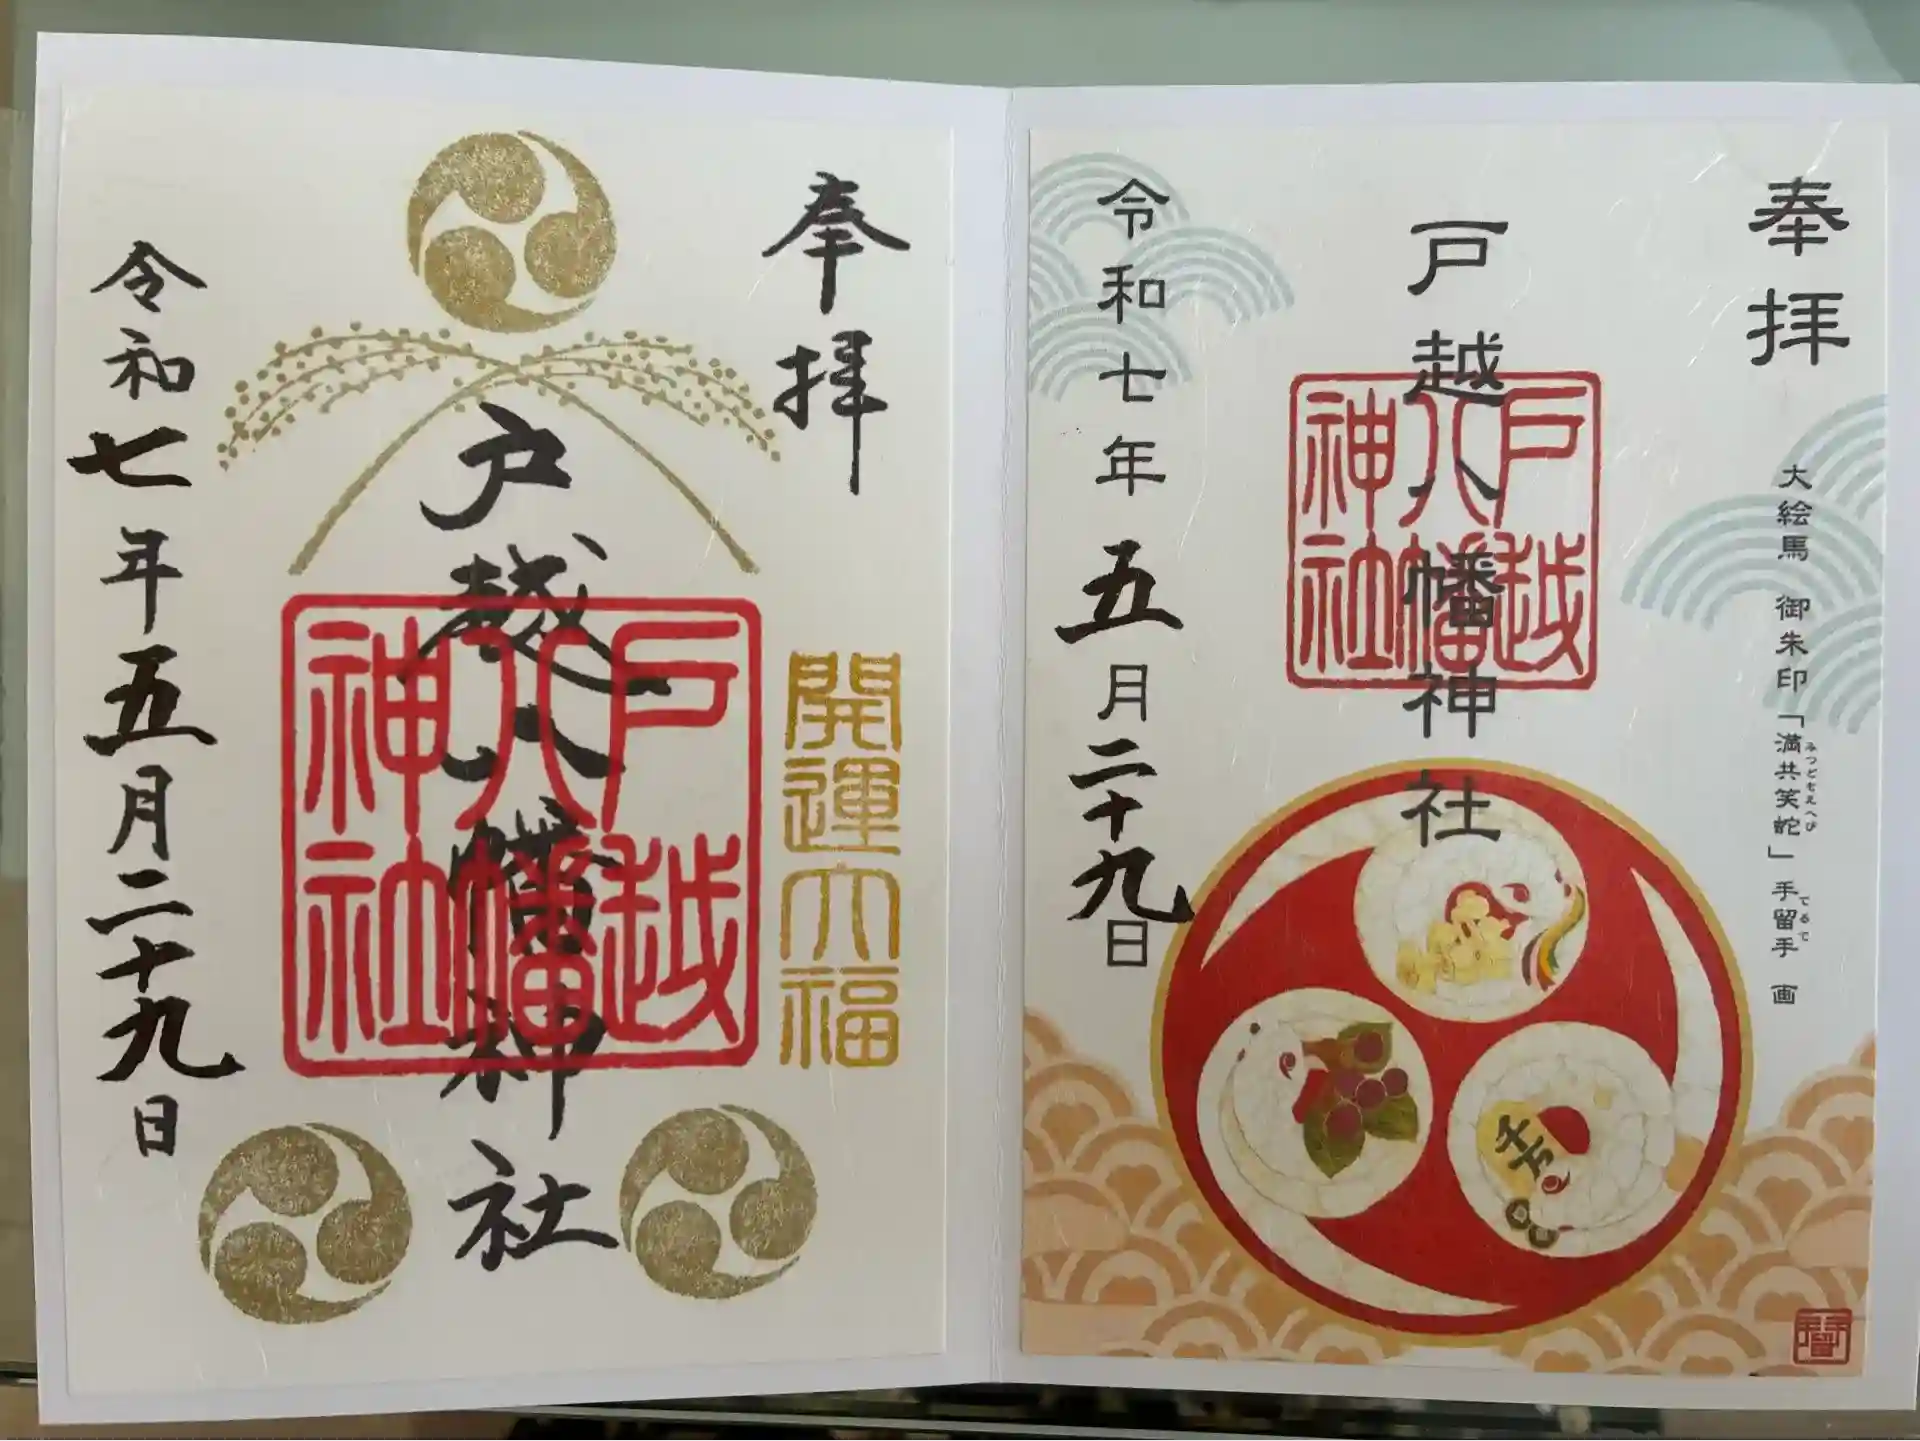 奉拝
戸越八幡神社
戸越
八幡
神社
開運大福
令和七年五月二十九日
奉拝
大絵馬 御朱印「満共笑蛇」手留手 画
みつどもえへび
てるて
戸越八幡神社
戸越
八幡
神社
令和七年五月二十九日